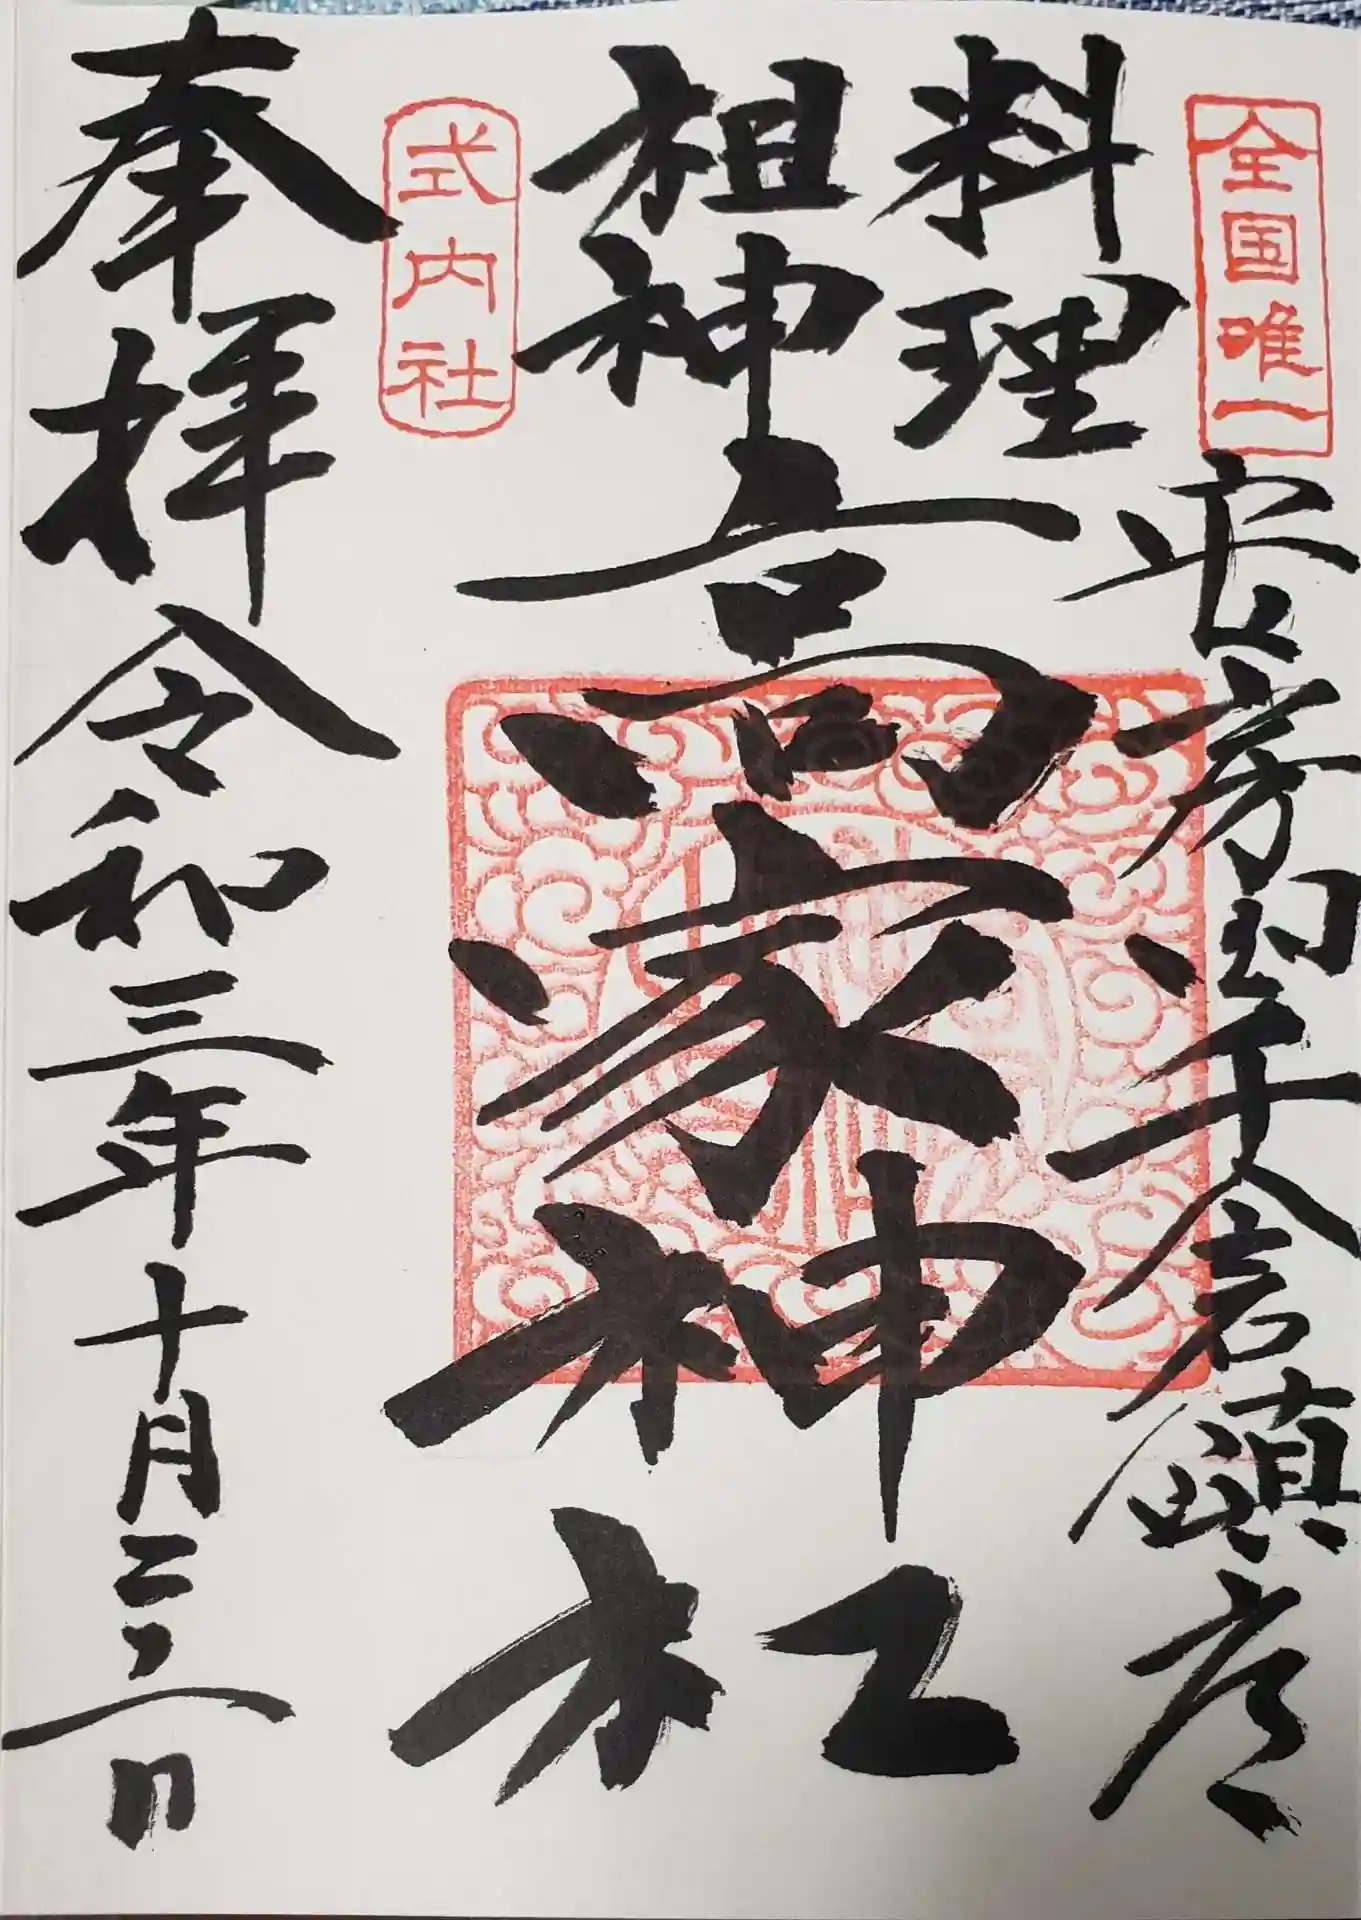 全国唯一
安房国千倉鎮座
料理
祖神
高家神社
式内社
奉拝 令和三年十月二二日